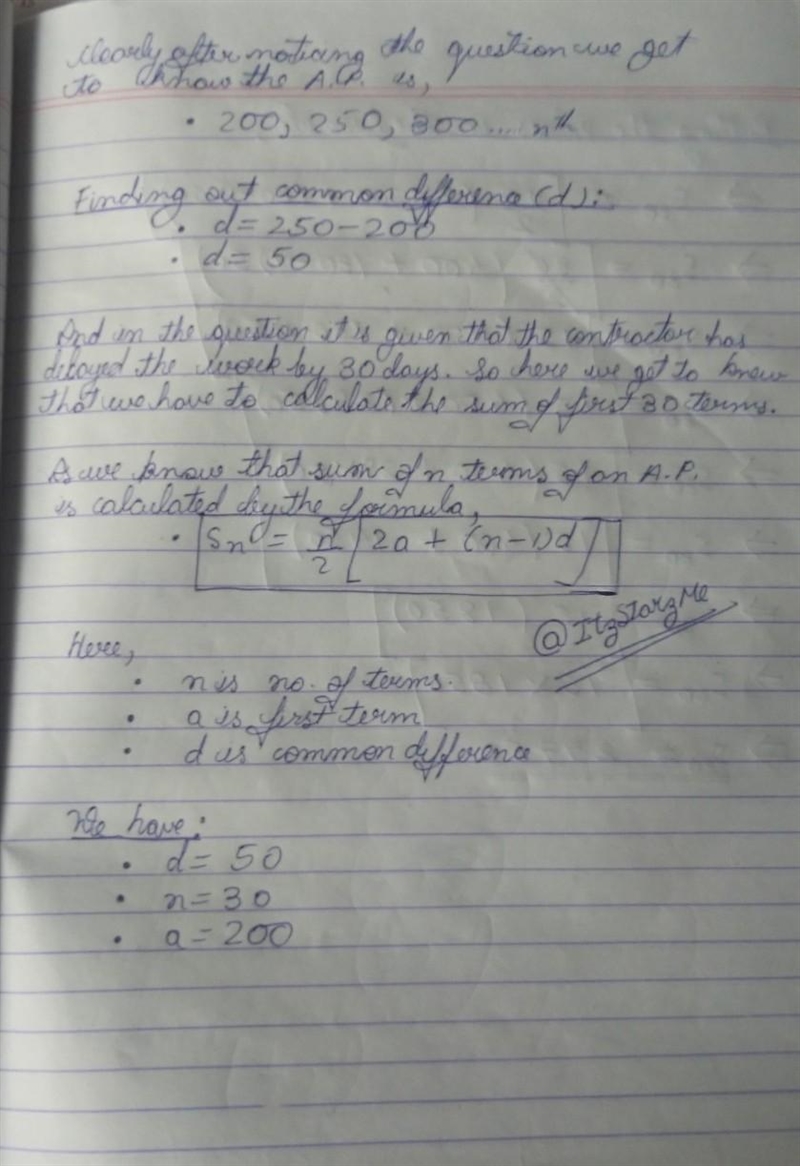 Clearly after noticing the question we get
to know the A.P. is,
• 200, 250, 300 .... nth
Finding out common difference (d):
• d = 250 - 200
• d = 50
And in the question it is given that the contractor has
delayed the work by 30 days. So here we get to know
that we have to calculate the sum of first 30 terms.
As we know that sum of n terms of an A.P.
is calculated by the formula,
• Sn = n/2 [2a + (n-1)d]
@ItzStarzMe
Here,
• n is no. of terms.
• a is first term
• d is common difference
We have:
• d = 50
• n = 30
• a = 200